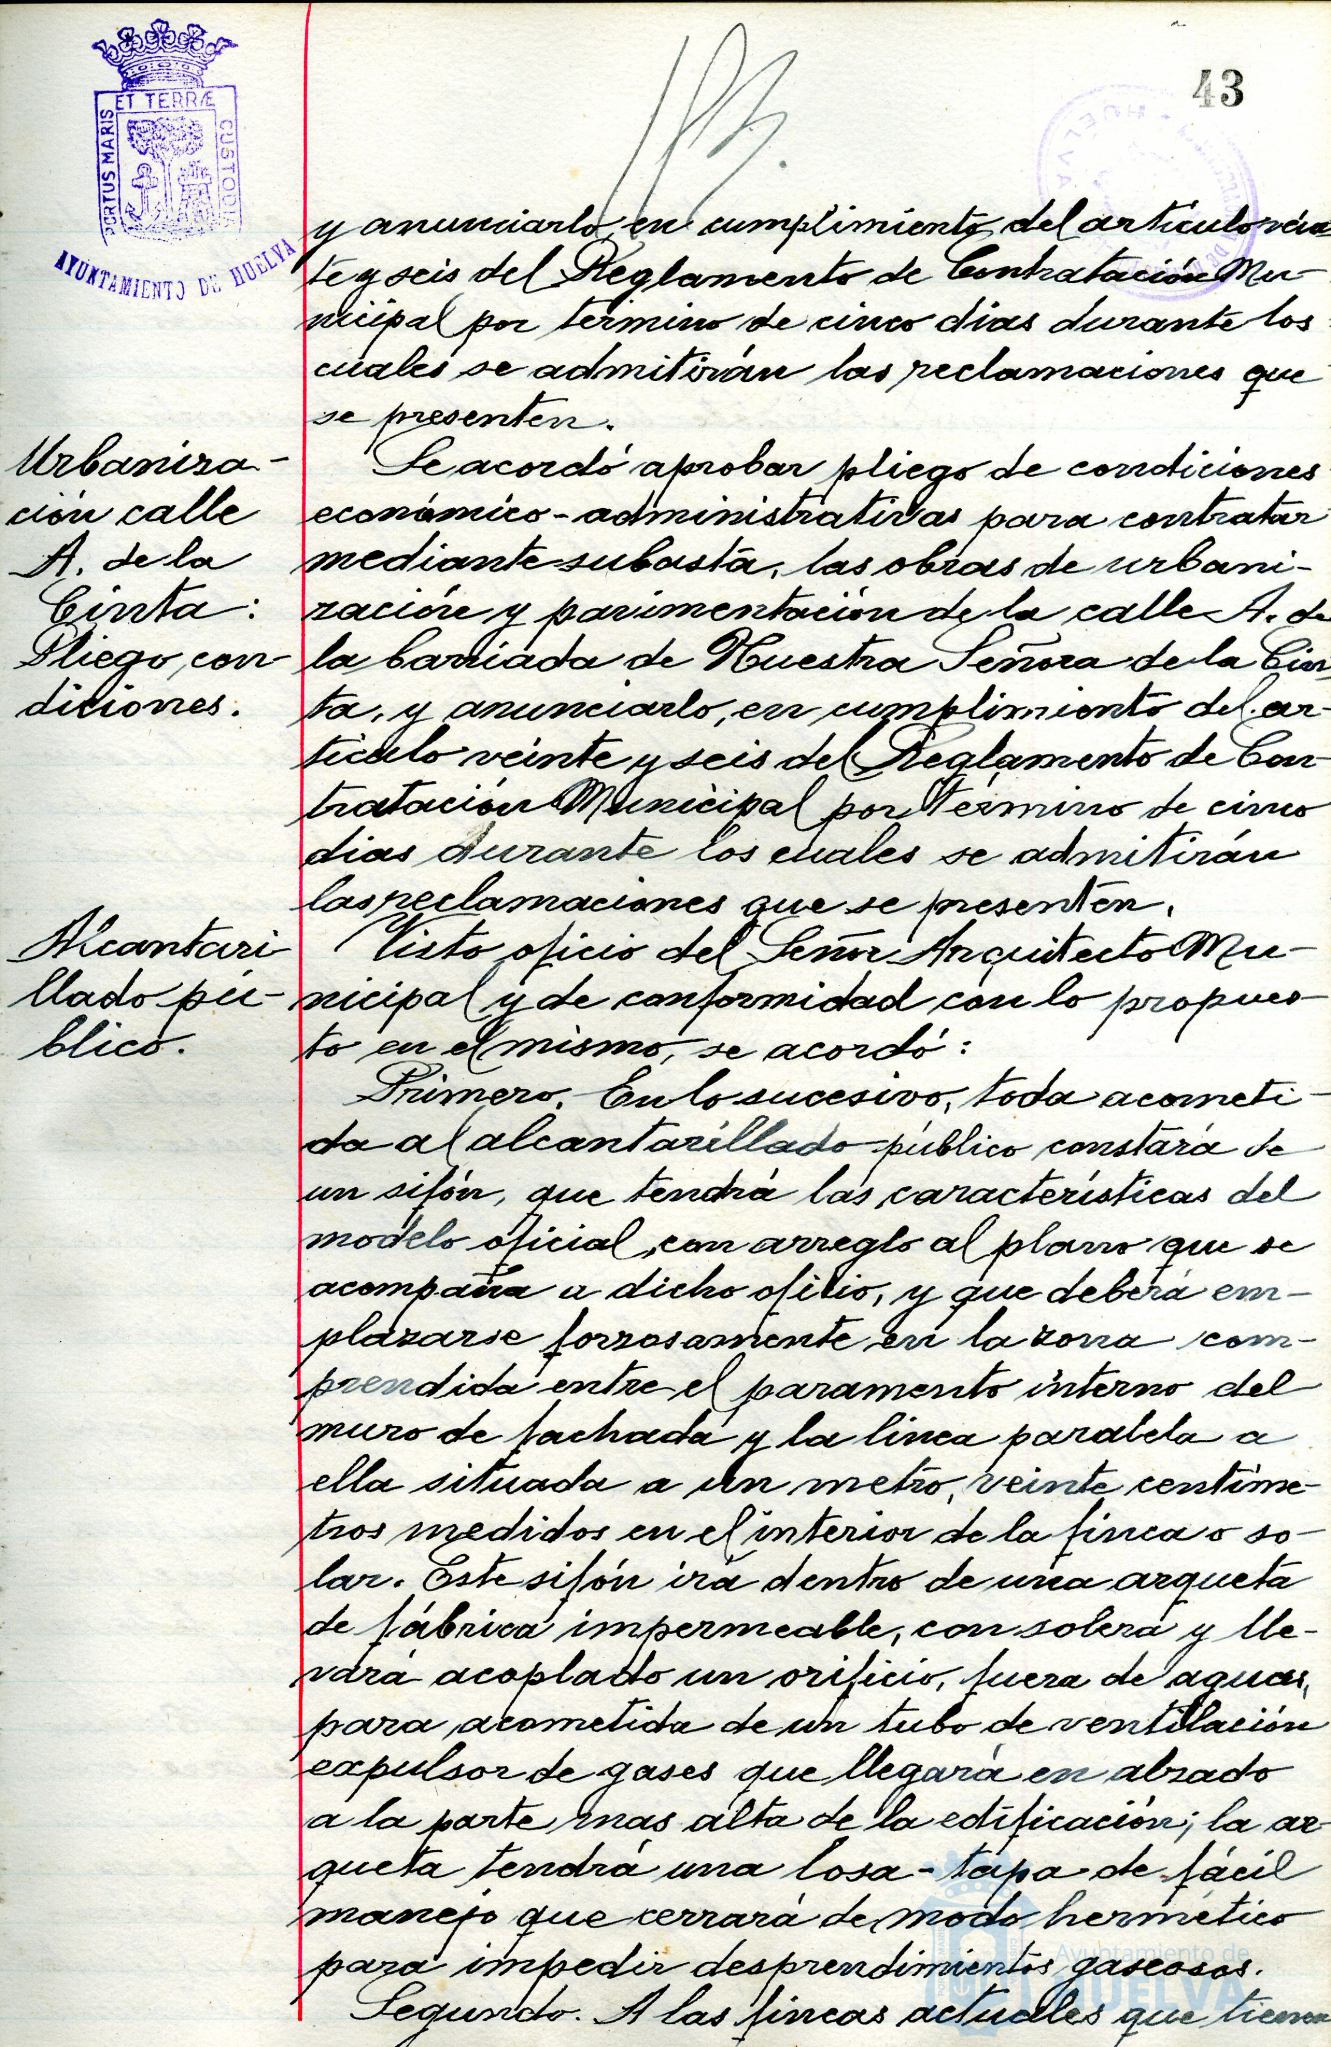 43
PORTUS MARIS ET TERRÆ CUSTODIA
AYUNTAMIENTO DE HUELVA
y anunciarlo, en cumplimiento del artículo vein
te y seis del Reglamento de Contratación Mu-
nicipal por término de cinco dias durante los
cuales se admitirán las reclamaciones que
se presenten.
Urbaniza-
ción calle
A. de la
Cinta:
Pliego con
diciones.
Se acordó aprobar pliego de condiciones
económico-administrativas para contratar
mediante subasta, las obras de urbani-
zación y pavimentación de la calle A. de
la barriada de Nuestra Señora de la Cin
ta, y anunciarlo, en cumplimiento del ar-
tículo veinte y seis del Reglamento de Con-
tratación Municipal por término de cinco
dias durante los cuales se admitirán
las reclamaciones que se presenten.
Alcantari
llado pú-
blico.
Visto oficio del Señor Arquitecto Mu-
nicipal y de conformidad con lo propues-
to en el mismo, se acordó:
Primero. En lo sucesivo, toda acometi-
da al alcantarillado público constará de
un sifón, que tendrá las características del
modelo oficial, con arreglo al plano que se
acompaña a dicho oficio, y que deberá em-
plazarse forzosamente en la zona com-
prendida entre el paramento interno del
muro de fachada y la linea paralela a
ella situada a un metro, veinte centíme-
tros medidos en el interior de la finca o so-
lar. Este sifón irá dentro de una arqueta
de fábrica impermeable, con solera y lle-
vará acoplado un orificio, fuera de aguas,
para acometida de un tubo de ventilación
expulsor de gases que llegará en alzado
a la parte mas alta de la edificación; la ar-
queta tendrá una losa-tapa de fácil
manejo que cerrará de modo hermético
para impedir desprendimientos gaseosos.
Segundo. A las fincas actuales que tienen
Ayuntamiento de
HUELVA